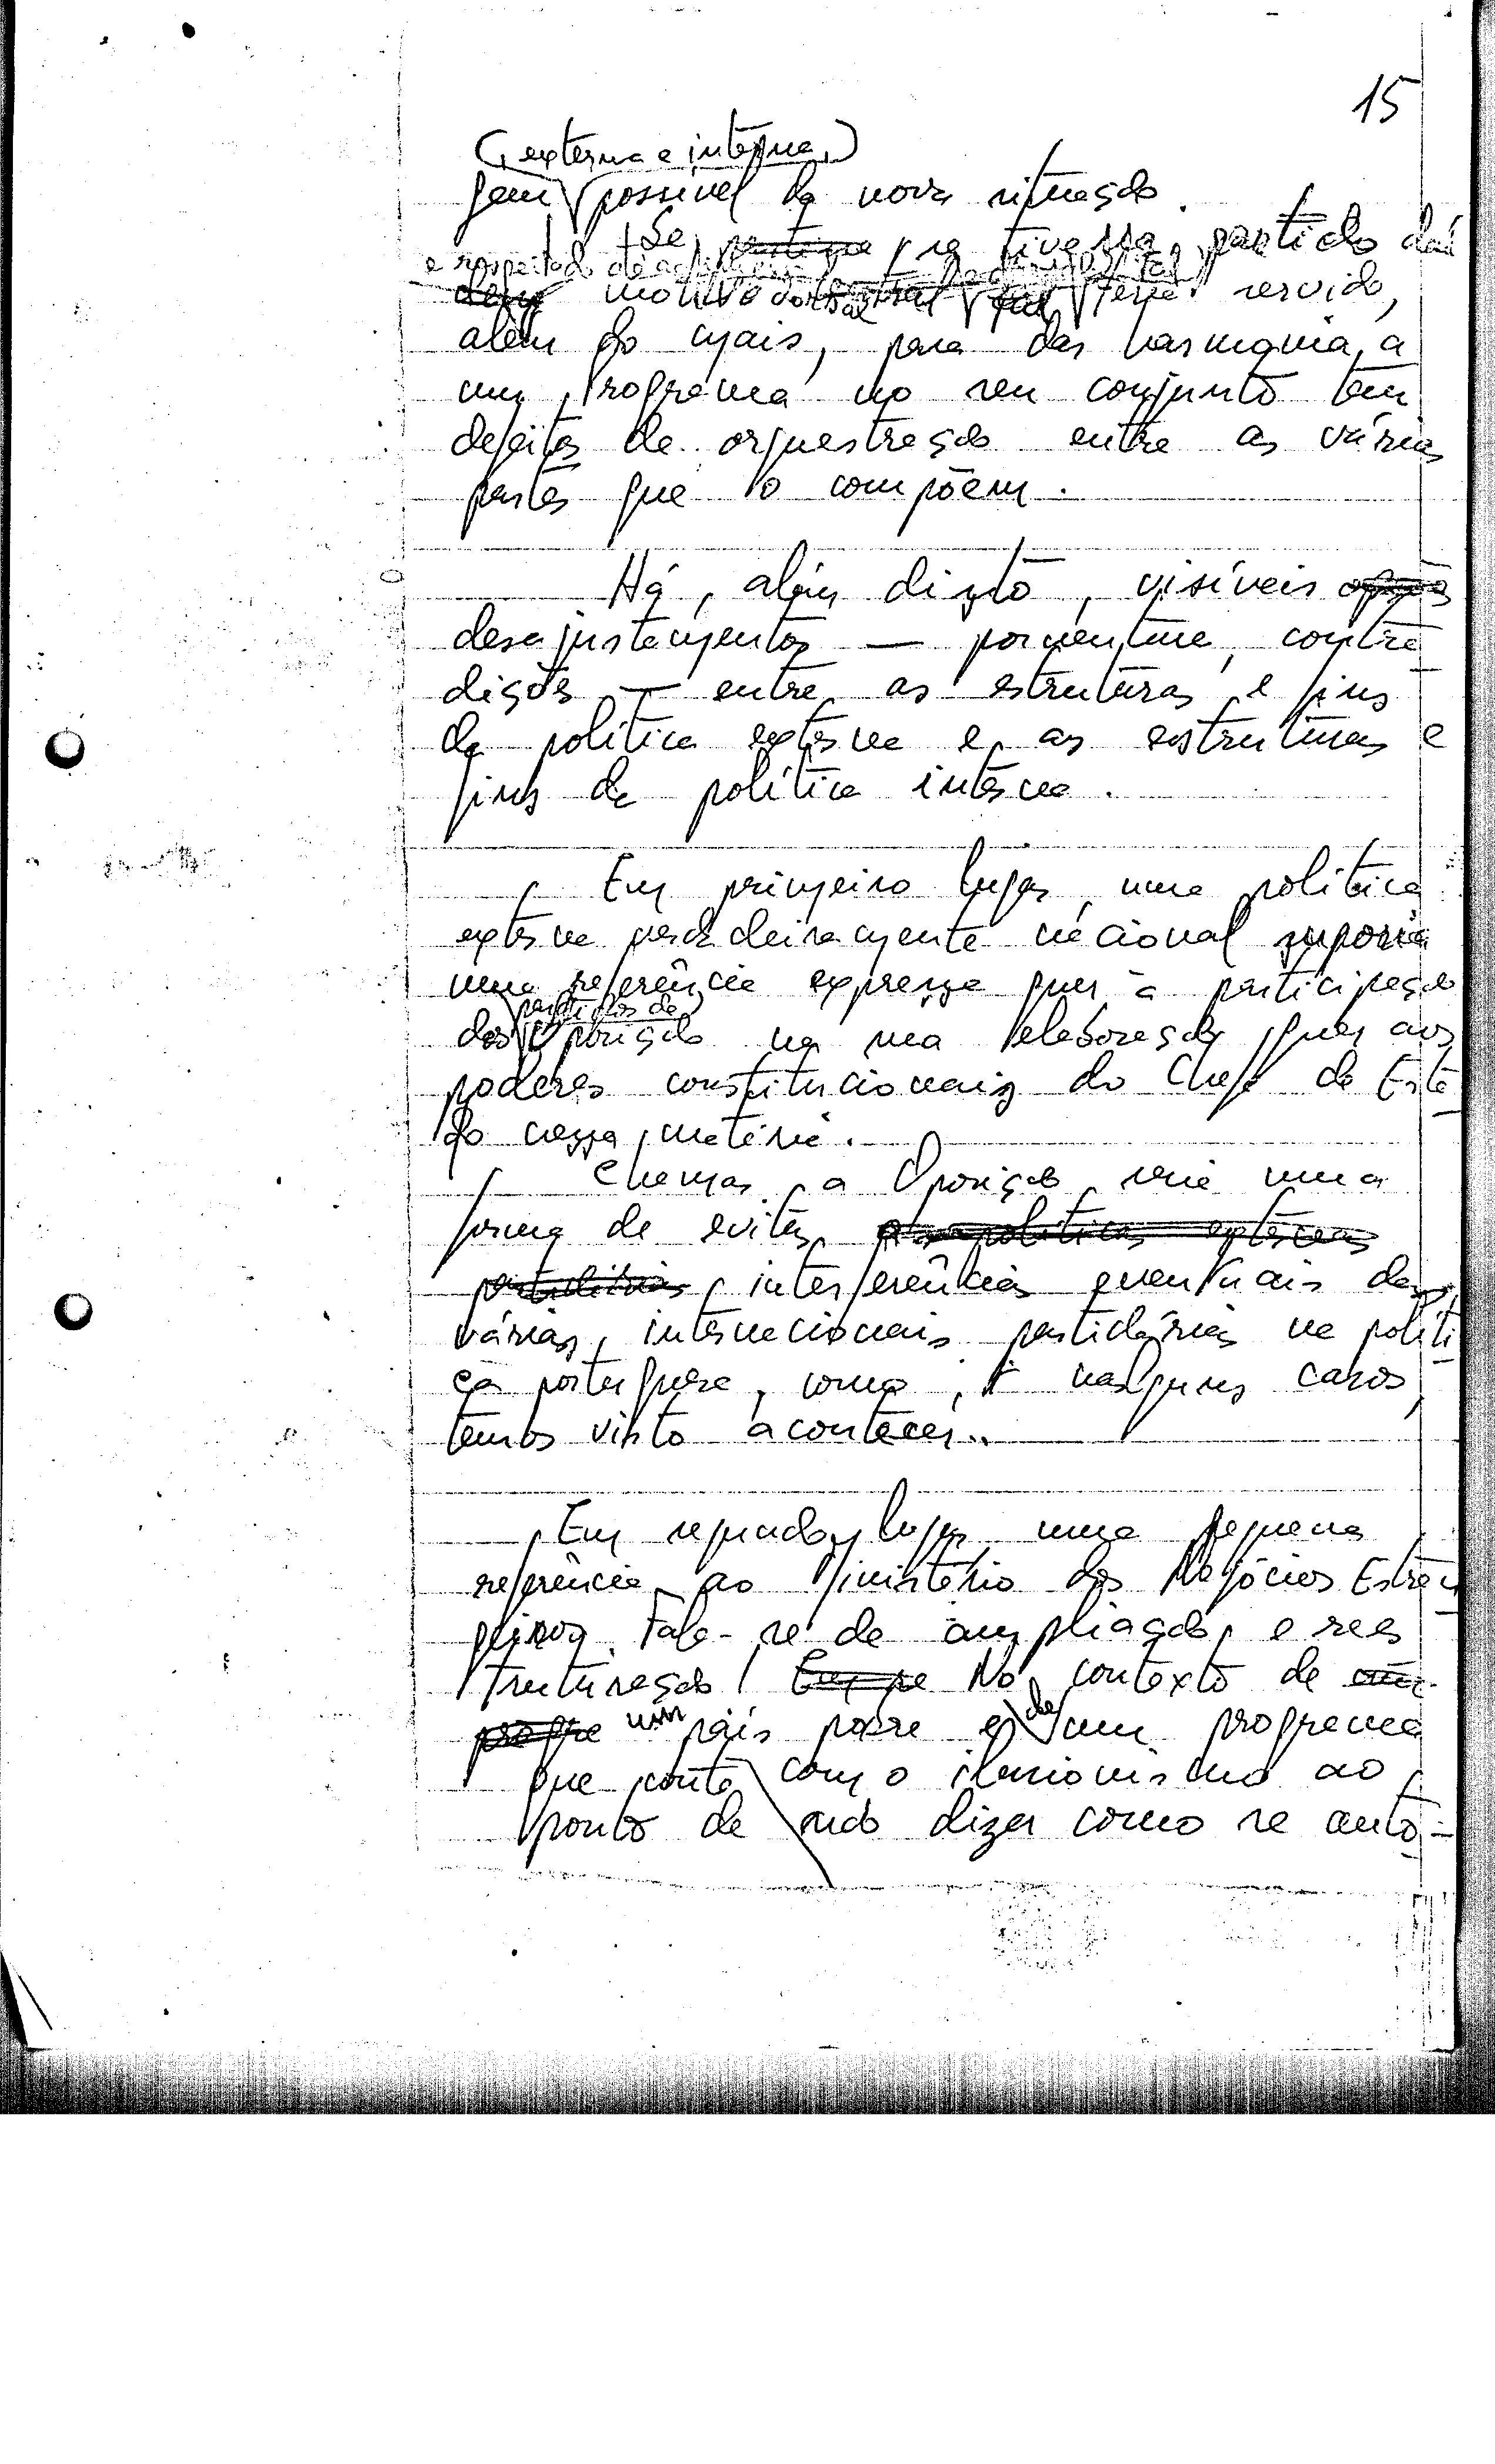 15
(externa e interna)
gem possível da nova situação.
Se se tivesse partido daí
e respeitado
motivo teria servido,
além do mais, para dar harmonia a
um Programa no seu conjunto tem
defeitos de orquestração entre as várias
partes que o compõem.
Há, além disto, visíveis
desajustamentos — porventura, contra
dições — entre as estruturas e fins
da política externa e as estruturas e
fins da política interna.
Em primeiro lugar, uma política
externa verdadeiramente nacional suporia
uma referência expressa quer à participação
partidos de
dos Oposição na sua elaboração, quer aos
poderes constitucionais do Chefe de Esta
do nessa matéria.
Chamar a Oposição seria uma
forma de evitar políticas externas
partidárias interferências eventuais das
várias internacionais partidárias na polít
ca portuguesa, como, nalguns casos,
temos visto acontecer..
Em segundo lugar uma pequena
referência ao Ministério dos Negócios Estran
geiros. Fala-se de ampliação e rees
truturação! No contexto de
um país pobre e de um programa
que conta com o ilusionismo ao
ponto de não dizer como se auto-